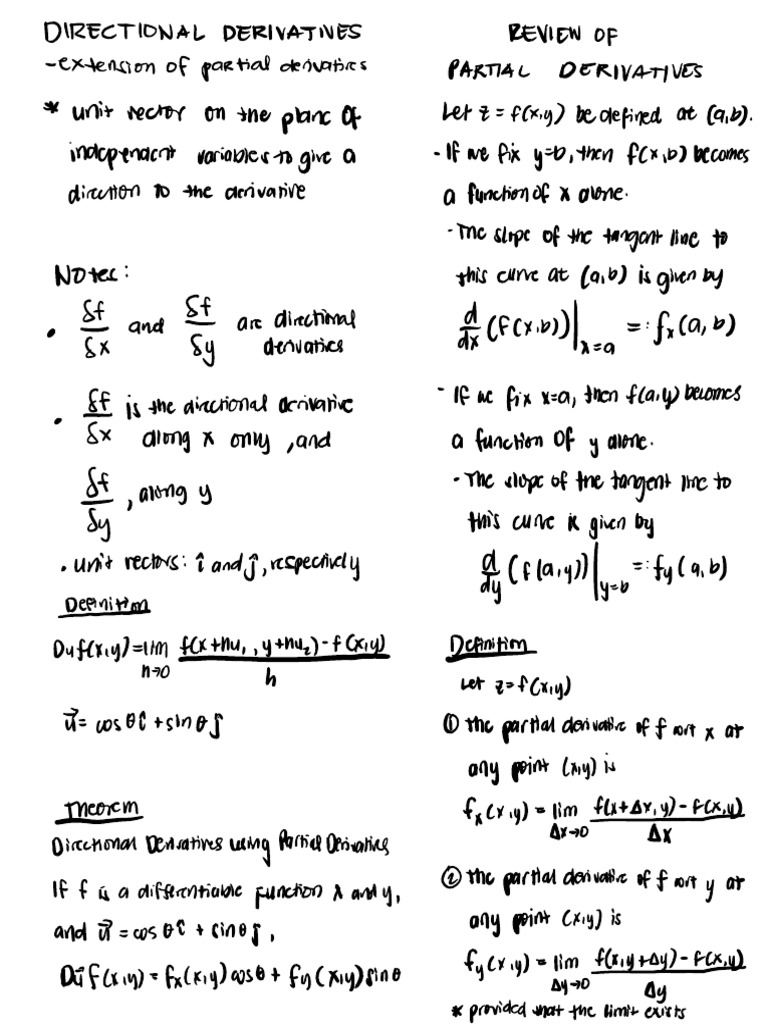 DIRECTIONAL DERIVATIVES
-extension of partial derivatives
* unit vector on the plane of
independent variables to give a
direction to the derivative
Notes:
• δf/δx and δf/δy are directional derivatives
• δf/δx is the directional derivative
along x only, and
δf/δy, along y
• unit vectors: î and ĵ, respectively
Definition
Duf(x,y) = lim h→0 f(x+hu₁, y+hu₂) - f(x,y) / h
u⃗ = cosθî + sinθĵ
Theorem
Directional Derivatives using Partial Derivatives
If f is a differentiable function x and y,
and u⃗ = cosθî + sinθĵ,
Du⃗f(x,y) = fx(x,y)cosθ + fy(x,y)sinθ
REVIEW OF
PARTIAL DERIVATIVES
Let z = f(x,y) be defined at (a,b).
- If we fix y=b, then f(x,b) becomes
a function of x alone.
- The slope of the tangent line to
this curve at (a,b) is given by
d/dx (f(x,b))|x=a =: fx(a,b)
- If we fix x=a, then f(a,y) becomes
a function of y alone.
- The slope of the tangent line to
this curve is given by
d/dy (f(a,y))|y=b =: fy(a,b)
Definition
Let z=f(x,y)
① the partial derivative of f wrt x at
any point (x,y) is
fx(x,y) = lim Δx→0 f(x+Δx,y) - f(x,y) / Δx
② the partial derivative of f wrt y at
any point (x,y) is
fy(x,y) = lim Δy→0 f(x,y+Δy) - f(x,y) / Δy
* provided that the limit exists